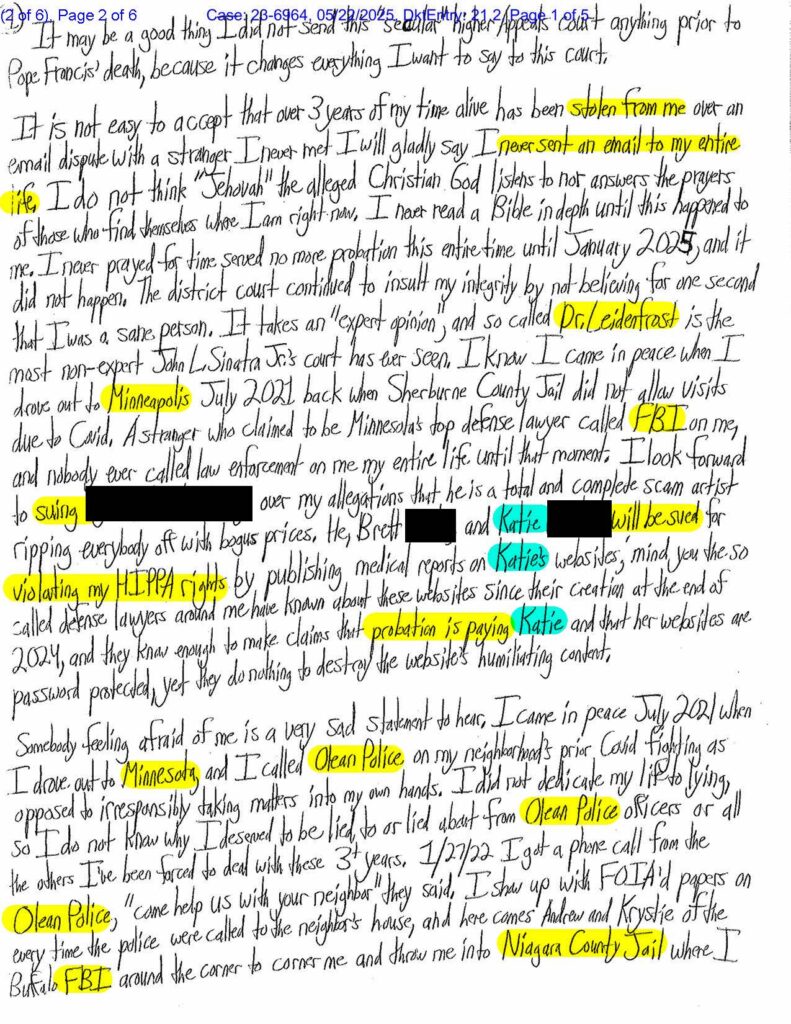 (2 of 6), Page 2 of 6 Case: 23-6964, 05/22/2025, DktEntry: 21.2, Page 1 of 5
It may be a good thing I did not send this "secular" higher Appeals court anything prior to
Pope Francis' death, because it changes everything I want to say to this court.
It is not easy to accept that over 3 years of my time alive has been stolen from me over an
email dispute with a stranger I never met I will gladly say I never sent an email to my entire
life. I do not think "Jehovah" the alleged Christian God listens to nor answers the prayers
of those who find themselves where I am right now. I never read a Bible in depth until this happened to
me. I never prayed for time served no more probation this entire time until January 2025, and it
did not happen. The district court continued to insult my integrity by not believing for one second
that I was a sane person. It takes an "expert opinion", and so called Dr. Leidenfrost is the
most non-expert John L Sinatra Jr.'s court has ever seen. I know I came in peace when I
drove out to Minneapolis July 2021 back when Sherburne County Jail did not allow visits
due to Covid. A stranger who claimed to be Minnesota's top defense lawyer called FBI on me,
and nobody ever called law enforcement on me my entire life until that moment. I look forward
to suing over my allegations that he is a total and complete scam artist
ripping everybody off with bogus prices. He, Brett and Katie will be sued for
violating my HIPPA rights by publishing medical reports on Katie's websites, mind you the so
called defense lawyers around me have known about these websites since their creation at the end of
2024, and they know enough to make claims that probation is paying Katie and that her websites are
password protected, yet they do nothing to destroy the website's humiliating content.
Somebody feeling afraid of me is a very sad statement to hear. I came in peace July 2021 when
I drove out to Minnesota, and I called Olean Police on my neighborhood's prior Covid fighting as
opposed to irresponsibly taking matters into my own hands. I did not dedicate my life to lying,
so I do not know why I deserved to be lied to or lied about from Olean Police officers or all
the others I've been forced to deal with these 3+ years. 1/27/22 I got a phone call from the
Olean Police, "come help us with your neighbor" they said. I show up with FOIA'd papers on
every time the police were called to the neighbor's house, and here comes Andrew and Krystie of the
Buffalo FBI around the corner to corner me and throw me into Niagara County Jail where I